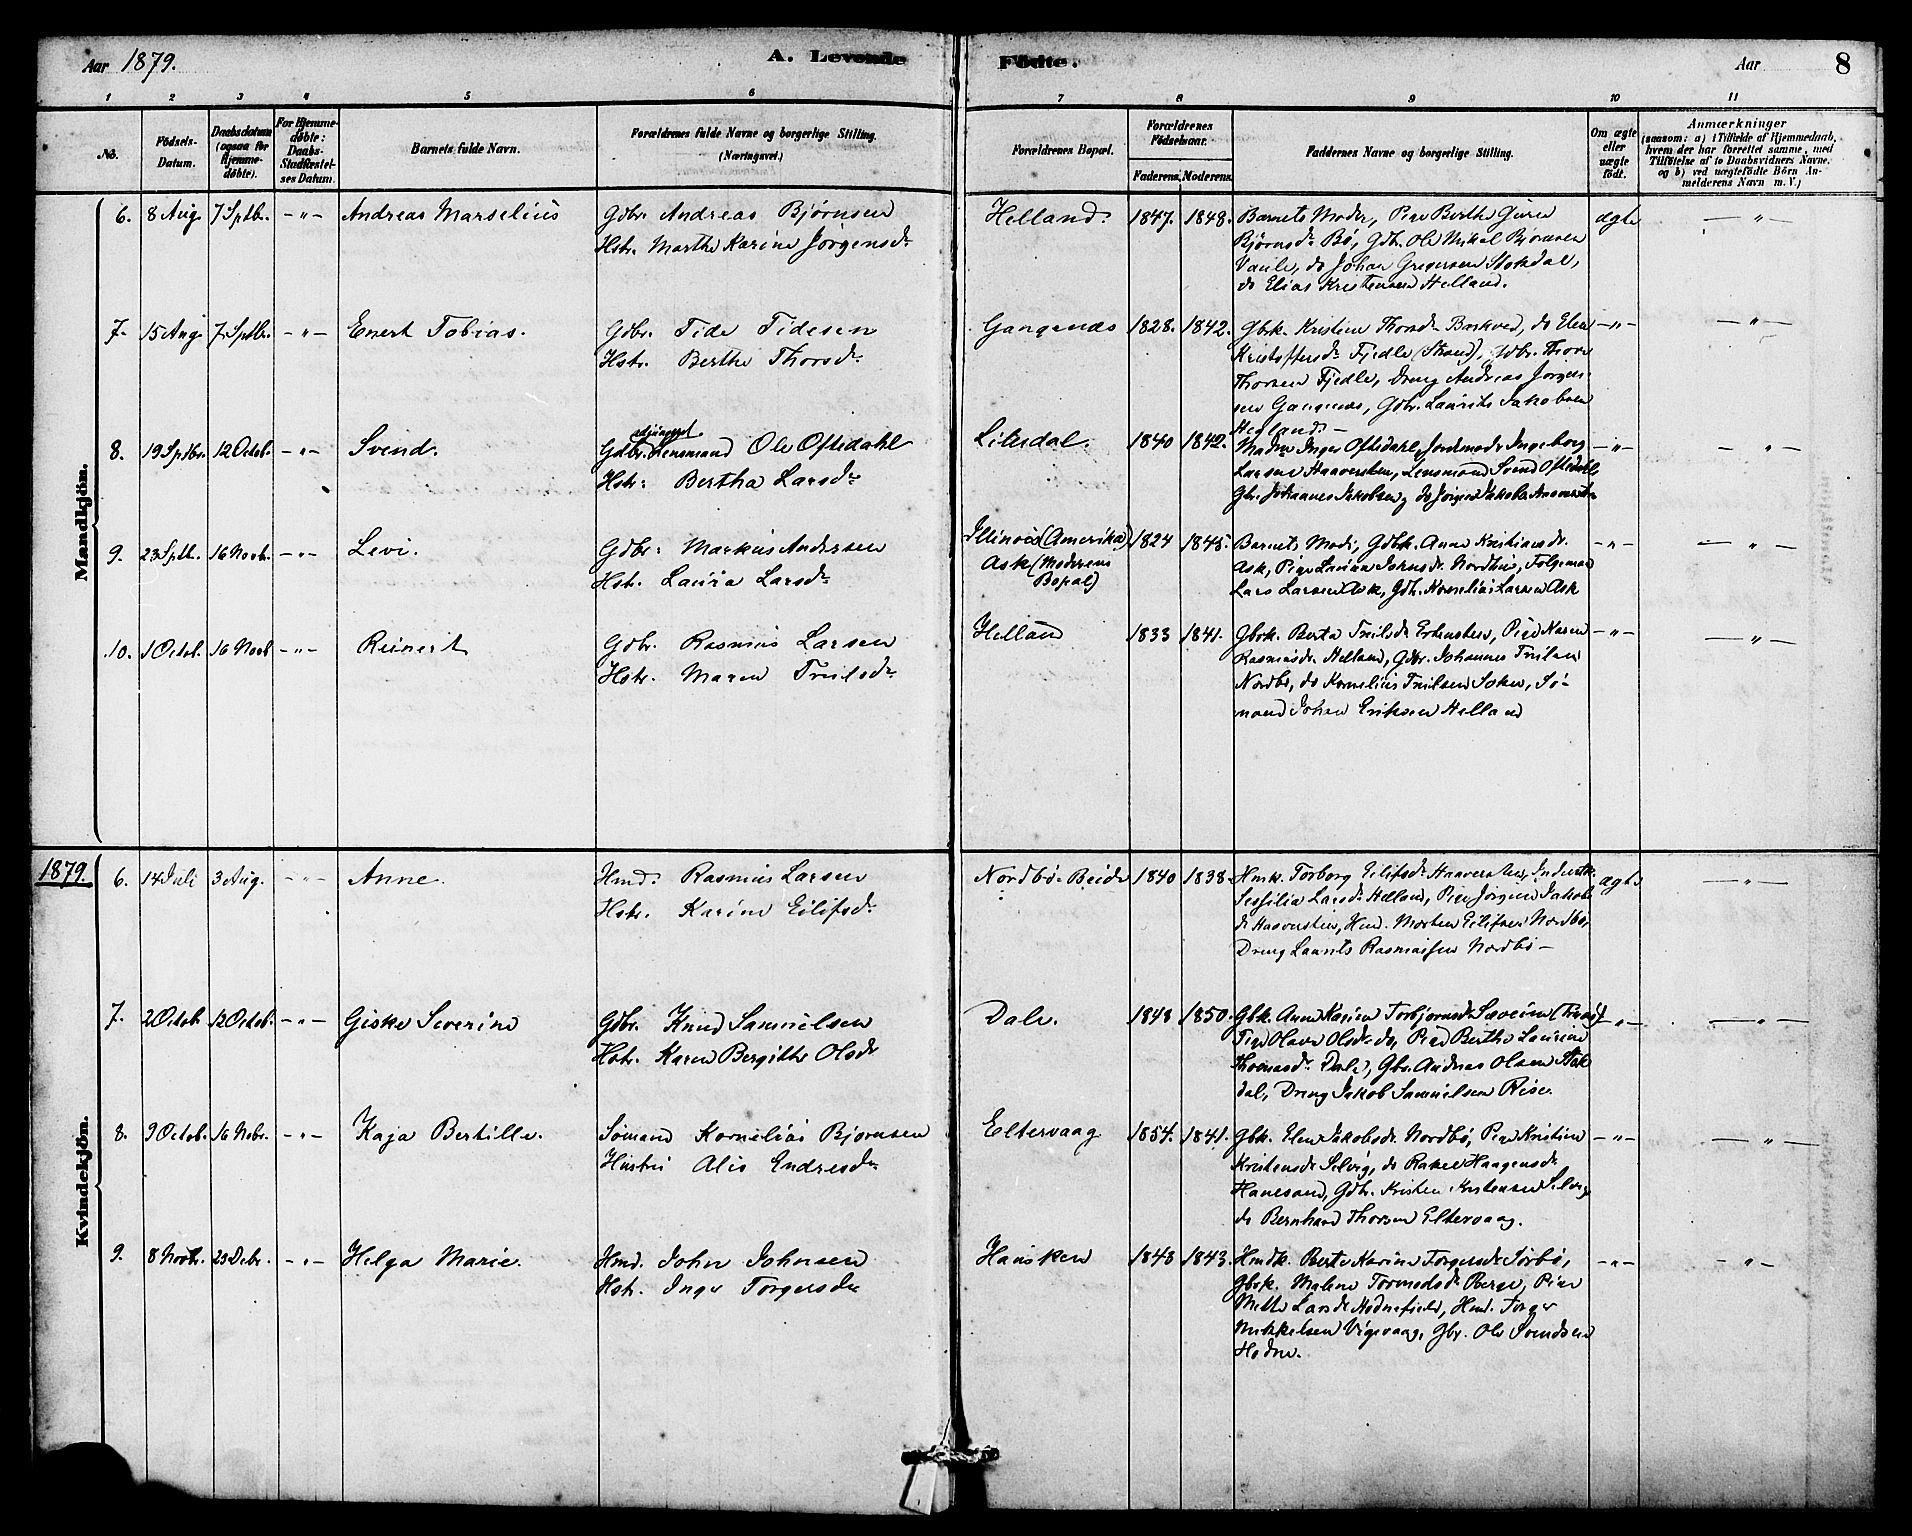 Aar 1879.
A. Levende Födte.
Aar
8
1 2 3 4 5 6 7 8 9 10 11
No.
Födsels-Datum.
Daabsdatum (ogsaa for Hjemmedöbte).
For Hjemmedöbte: Daabs-Stadfæstelses Datum.
Barnets fulde Navn.
Forældrenes fulde Navne og borgerlige Stilling.
(Næringsvei.)
Forældrenes Bopæl.
Forældrenes Födselsaar.
Faderens. Moderens.
Faddernes Navne og borgerlige Stilling.
Om ægte eller uægte födt.
Anmærkninger
(saasom: a) i Tilfælde af Hjemmedaab, hvem der har forrettet samme, med Tilföielse af to Daabsvidners Navne, og b) ved uægtefödte Börn Anmelderens Navn m. V.)
Mandkjön.
6. 8 Aug 7 Sptbr. -"- Andreas Marselius
Gdbr. Andreas Bjørnsen
Hstr. Marthe Karine Jørgensdr
Helland. 1847. 1848.
Barnets Moder, Pige Berthe Gurine
Bjørnsdr Bø, Gdbr. Ole Mikal Bjørnsen
Vaule, do Johan Gregersen Stokdal,
do Elias Kristensen Helland.
ægte -"-
7. 15 Aug 7 Sptbr. -"- Enert Tobias.
Gdbr. Tide Tidesen
Hstr. Berthe Thorsdr
Gangenæs 1828. 1842.
Gbrk. Kristine Thorsdr Barkved, do Elen
Kristoffersdr Fjedle (Strand), Gdbr. Thore
Thorsen Fjedle, Dreng Andreas Jørgen-
sen Gangenæs, Gdbr. Laurits Jakobsen
Hegland.-
-"- -"-
8. 19 Sptbr. 12 Octob. -"- Svend.
Gdbr. adjungeret Lensmand Ole Oftedahl
Hstr: Bertha Larsdr
Litesdal. 1840 1842.
Madm Inger Oftedahl, Jordmoder Ingeborg
Larsen Haaversten, Lensmand Svend Oftedahl,
Gbr. Johannes Jakobsen, do Jørgen Jakobs.
-"- -"-
9. 23 Sptb. 16 Novb. -"- Levi.
Gdbr: Markus Andersen
Hstr. Laura Larsdr
Illinois (Amerika)
Ask (Moderens
Bopæl)
1824 1845.
Barnets Moder, Gdbk. Anne Kristiansdr.
Ask, Pige Laura Johnsdr. Nordbø, Folgemand
Lars Larsen Ask, Gdbr. Kornelius Larsen Ask
-"- -"-
10. 1 Octob. 16 Novb -"- Reinert
Gdbr. Rasmus Larsen
Hstr. Maren Truelsdr
Helland 1833 1841.
Gbrk. Berta Truelsdr, Pige Karen
Rasmusdr. Helland, Gdbr. Johannes Truelsen
Nordbø, do Kornelius Truelsen Soken, Sø-
mand Johan Eriksen Helland
-"- -"-
1879.
Kvindekjön.
6. 14 Juli 3 Aug. -"- Anne.
Hmd. Rasmus Larsen
Hstr. Karine Eilifsdr
Nordbø. Beide 1840 1838.
Hmk. Torborg Eilifsdr Haaversten, Inderstk.
Sessilia Larsdr Helland, Pige Jørgine Jakobs-
dr Haaversten, Hmd. Morten Eilifsen Nordbø,
Dreng Laurits Rasmussen Nordbø-
ægte -"-
7. 2 Octob 12 Octob. -"- Giske Severine
Gdbr. Knud Samuelsen
Hstr. Karen Bergitte Olsdr
Dale. 1848 1850.
Gbk. Anne Karine Torbjørnsdr Sæveim,
Pige Olava Olsdr do, Pige Berthe Laurine
Thomasdr. Dale, Gbr. Andreas Olsen Stok-
dal, Dreng Jakob Samuelsen Rise.
-"- -"-
8. 9 Octob. 16 Nobr. -"- Kaja Bertille.
Sømand Kornelius Bjørnsen
Hustru Alis Endresdr
Eltervaag 1854. 1841.
Gbk. Elen Jakobsdr. Nordbø, Pige Kristine
Kristensdr Selvig, do Rakel Haagensdr
Hanesand, Gdbr. Kristen Kristensen Selvig
do Bernhard Thorsen Eltervaag.
-"- -"-
9. 8 Novbr. 23 Debr. -"- Helga Marie.
Hmd. John Johnsen
Hstr. Inger Torgersdr
Hausken 1843 1843.
Hmdk. Berte Karine Torgersdr Sørbø,
Gbrk. Malene Tormodsdr Berge, Pige
Mette Larsdr Hodnefjeld, Hmd. Torger
Mikkelsen Vigevaag, Gbr. Ole Svendsen
Hodne.
-"- -"-